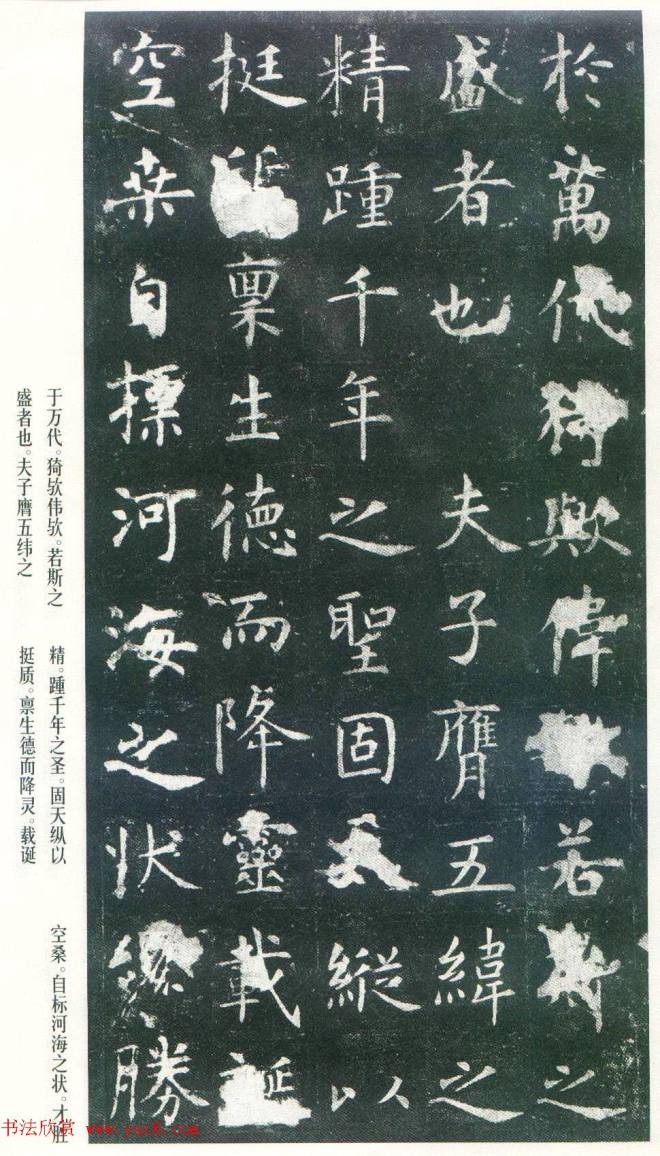 於萬代猗歟偉若斯之
盛者也夫子膺五緯之
精踵千年之聖固天縱以
挺質稟生德而降靈載誕
空桑自摽河海之狀纔勝
于万代。猗欤伟欤。若斯之
盛者也。夫子膺五纬之
精。踵千年之圣。固天纵以
挺质。禀生德而降灵。载诞
空桑。自标河海之状。才胜
书法欣赏 www.yac8.com